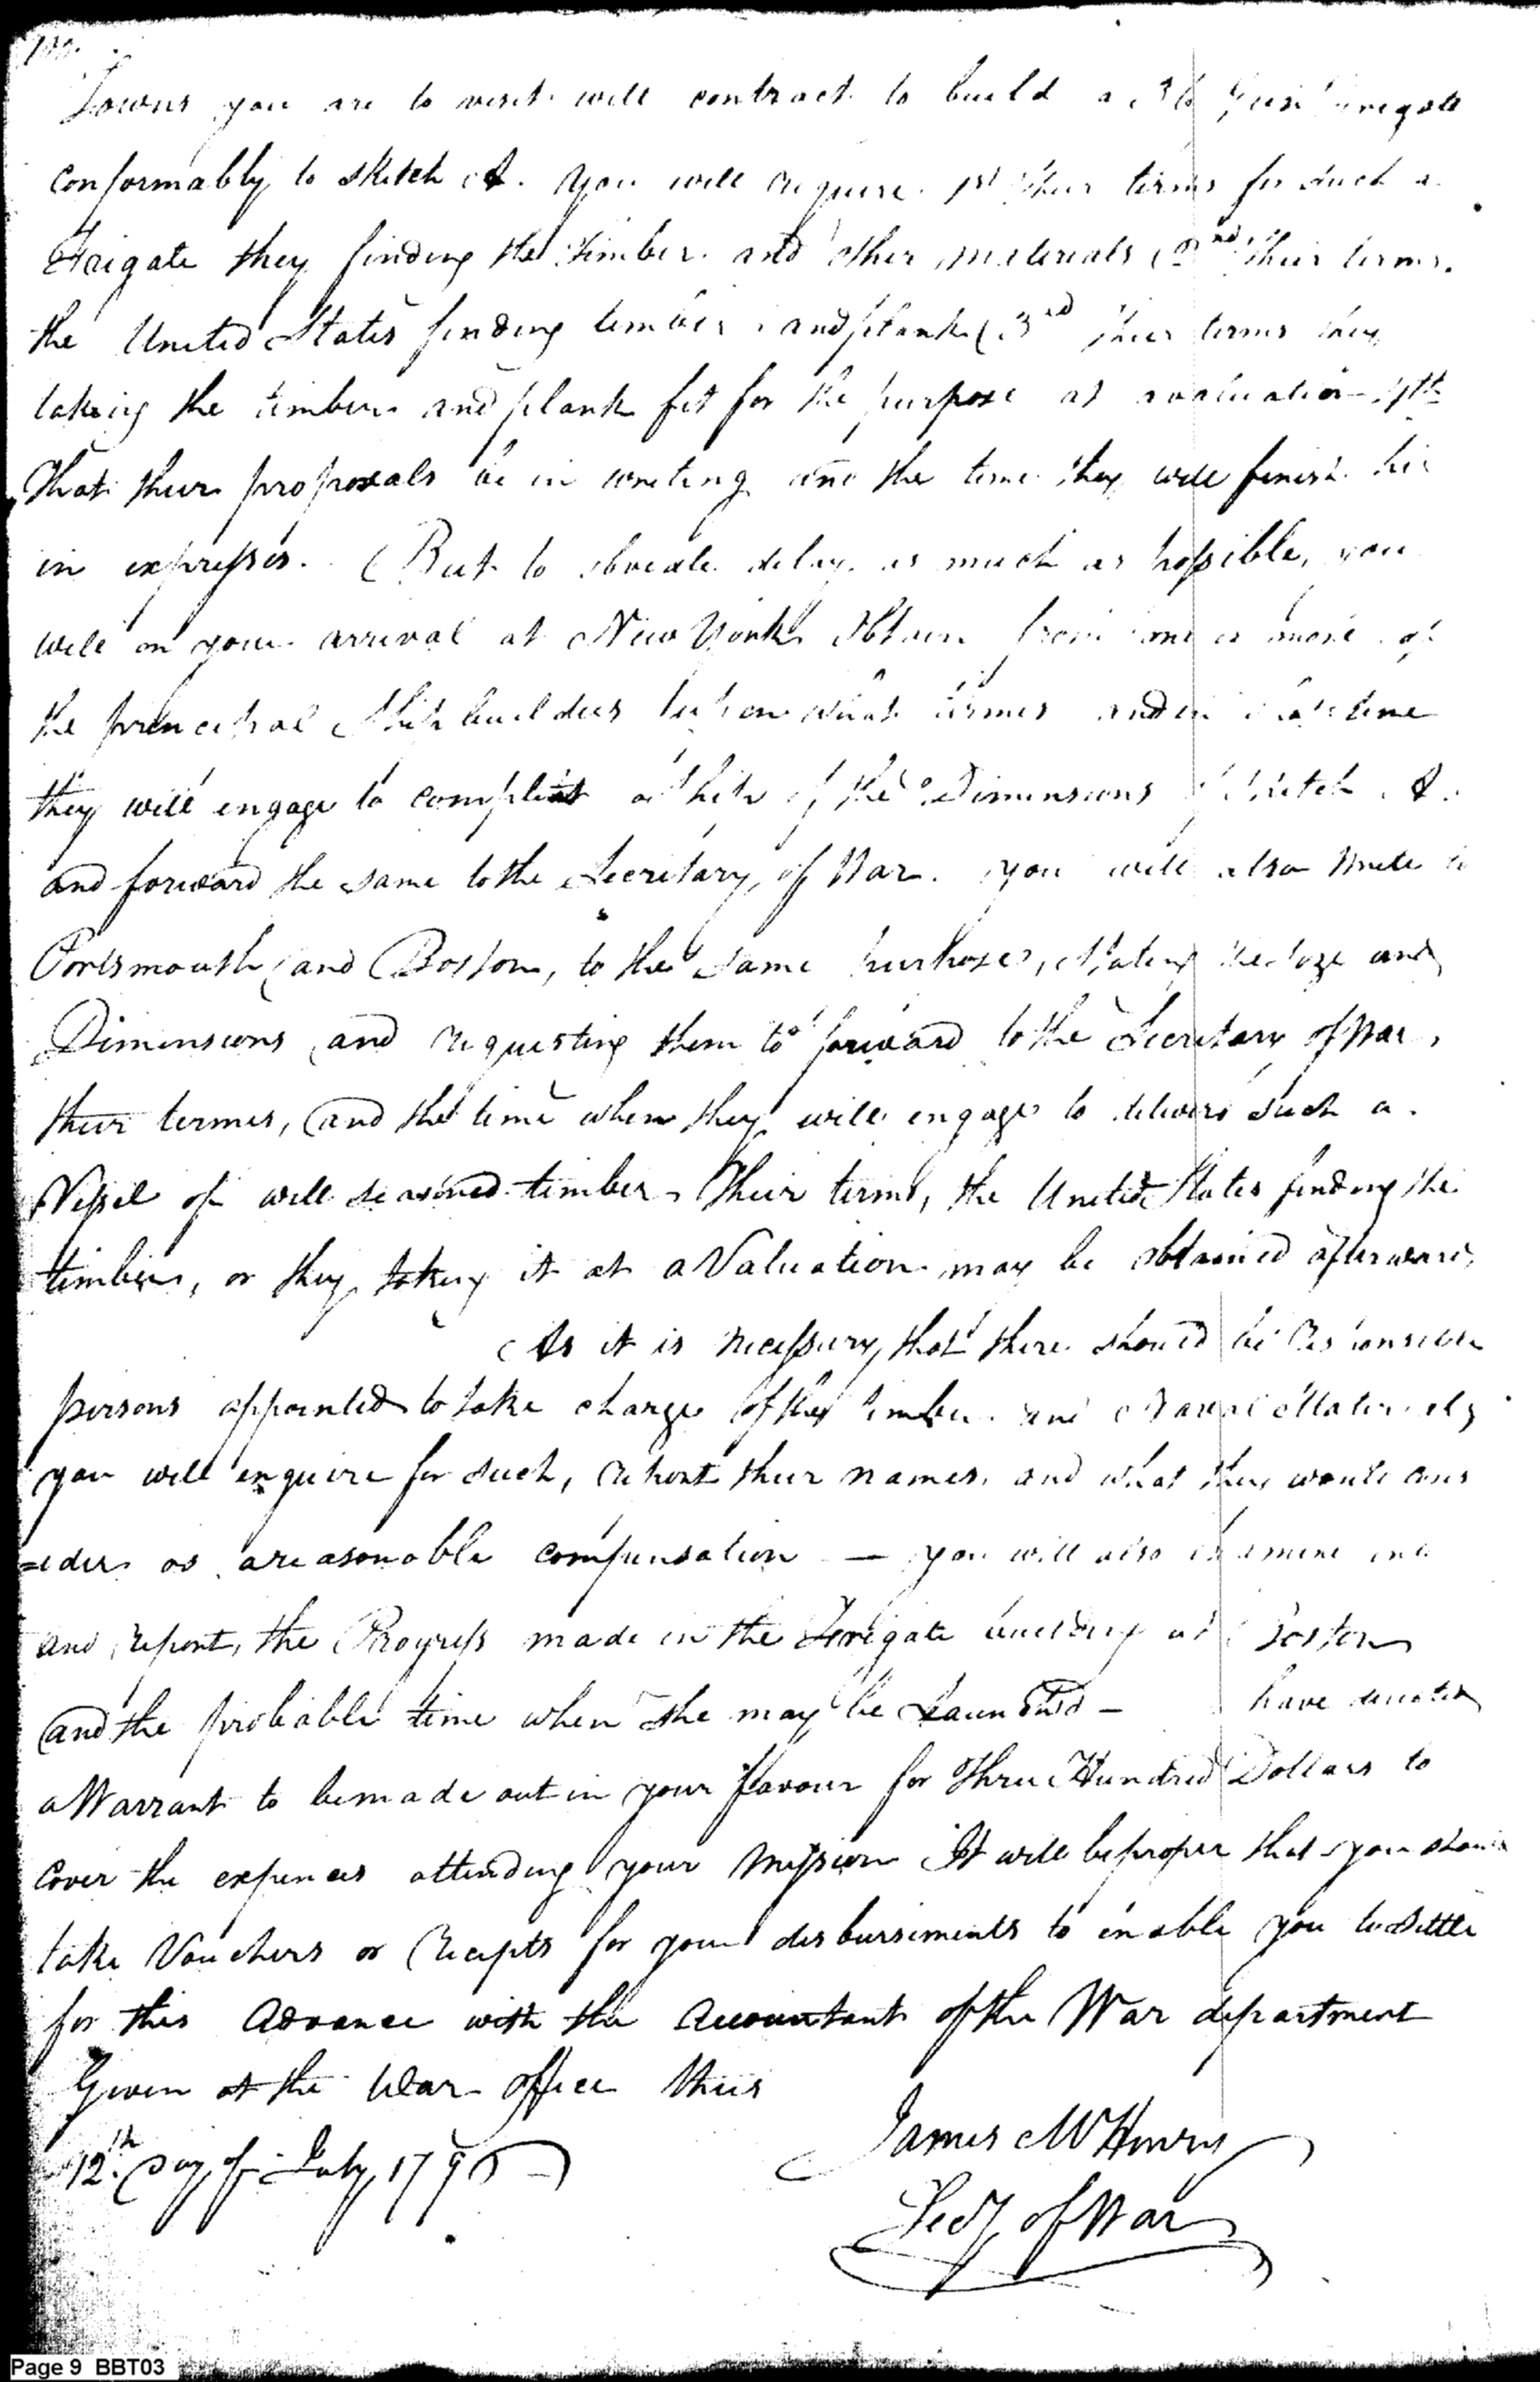 Towns you are to visit will contract to build a 36 Gun Frigate
conformably to sketch A. You will require 1st their terms for such a
Frigate they finding the timber and other materials 2nd their terms.
the United States finding timber and plank (3rd their terms they
taking the timber and plank fit for the purpose at a valuation - 4th
That their proposals be in writing and the time they will finish her
in expresses. But to obviate delay as much as possible, you
will on your arrival at New York obtain from one or more of
the principal Ship builders upon what termes and in what time
they will engage to compleat a Ship of the Dimensions Sketch A.
and forward the same to the Secretary of War. you will also write to
Portsmouth, and Boston, to the same purpose, stating the size and
Dimensions and requesting them to forward to the Secretary of War,
their termes, and the time when they will engage to deliver such a
Vessel of well seasoned timber - Their terms, the United States finding the
timber, or they taking it at a Valuation may be obtained afterward,
As it is necessary, that there should be
persons appointed to take charge of the timber and Naval Materials
you will enquire for such, report their names, and what they would cons
=ider as a reasonable compensation — you will also examine into
and report, the Progress made in the Frigate building at Boston
and the probable time when she may be Launched - have directed
a Warrant to be made out in your favour for Three Hundred Dollars to
Cover the expences attending your Mission It will be proper that you should
take Vouchers or Recepts for your disbursiments to enable you to Settle
for this Advance with the Accountant of the War department
Given at the War office this
12th Day of July 1796
James McHenry
Secy of War
Page 9 BBT03